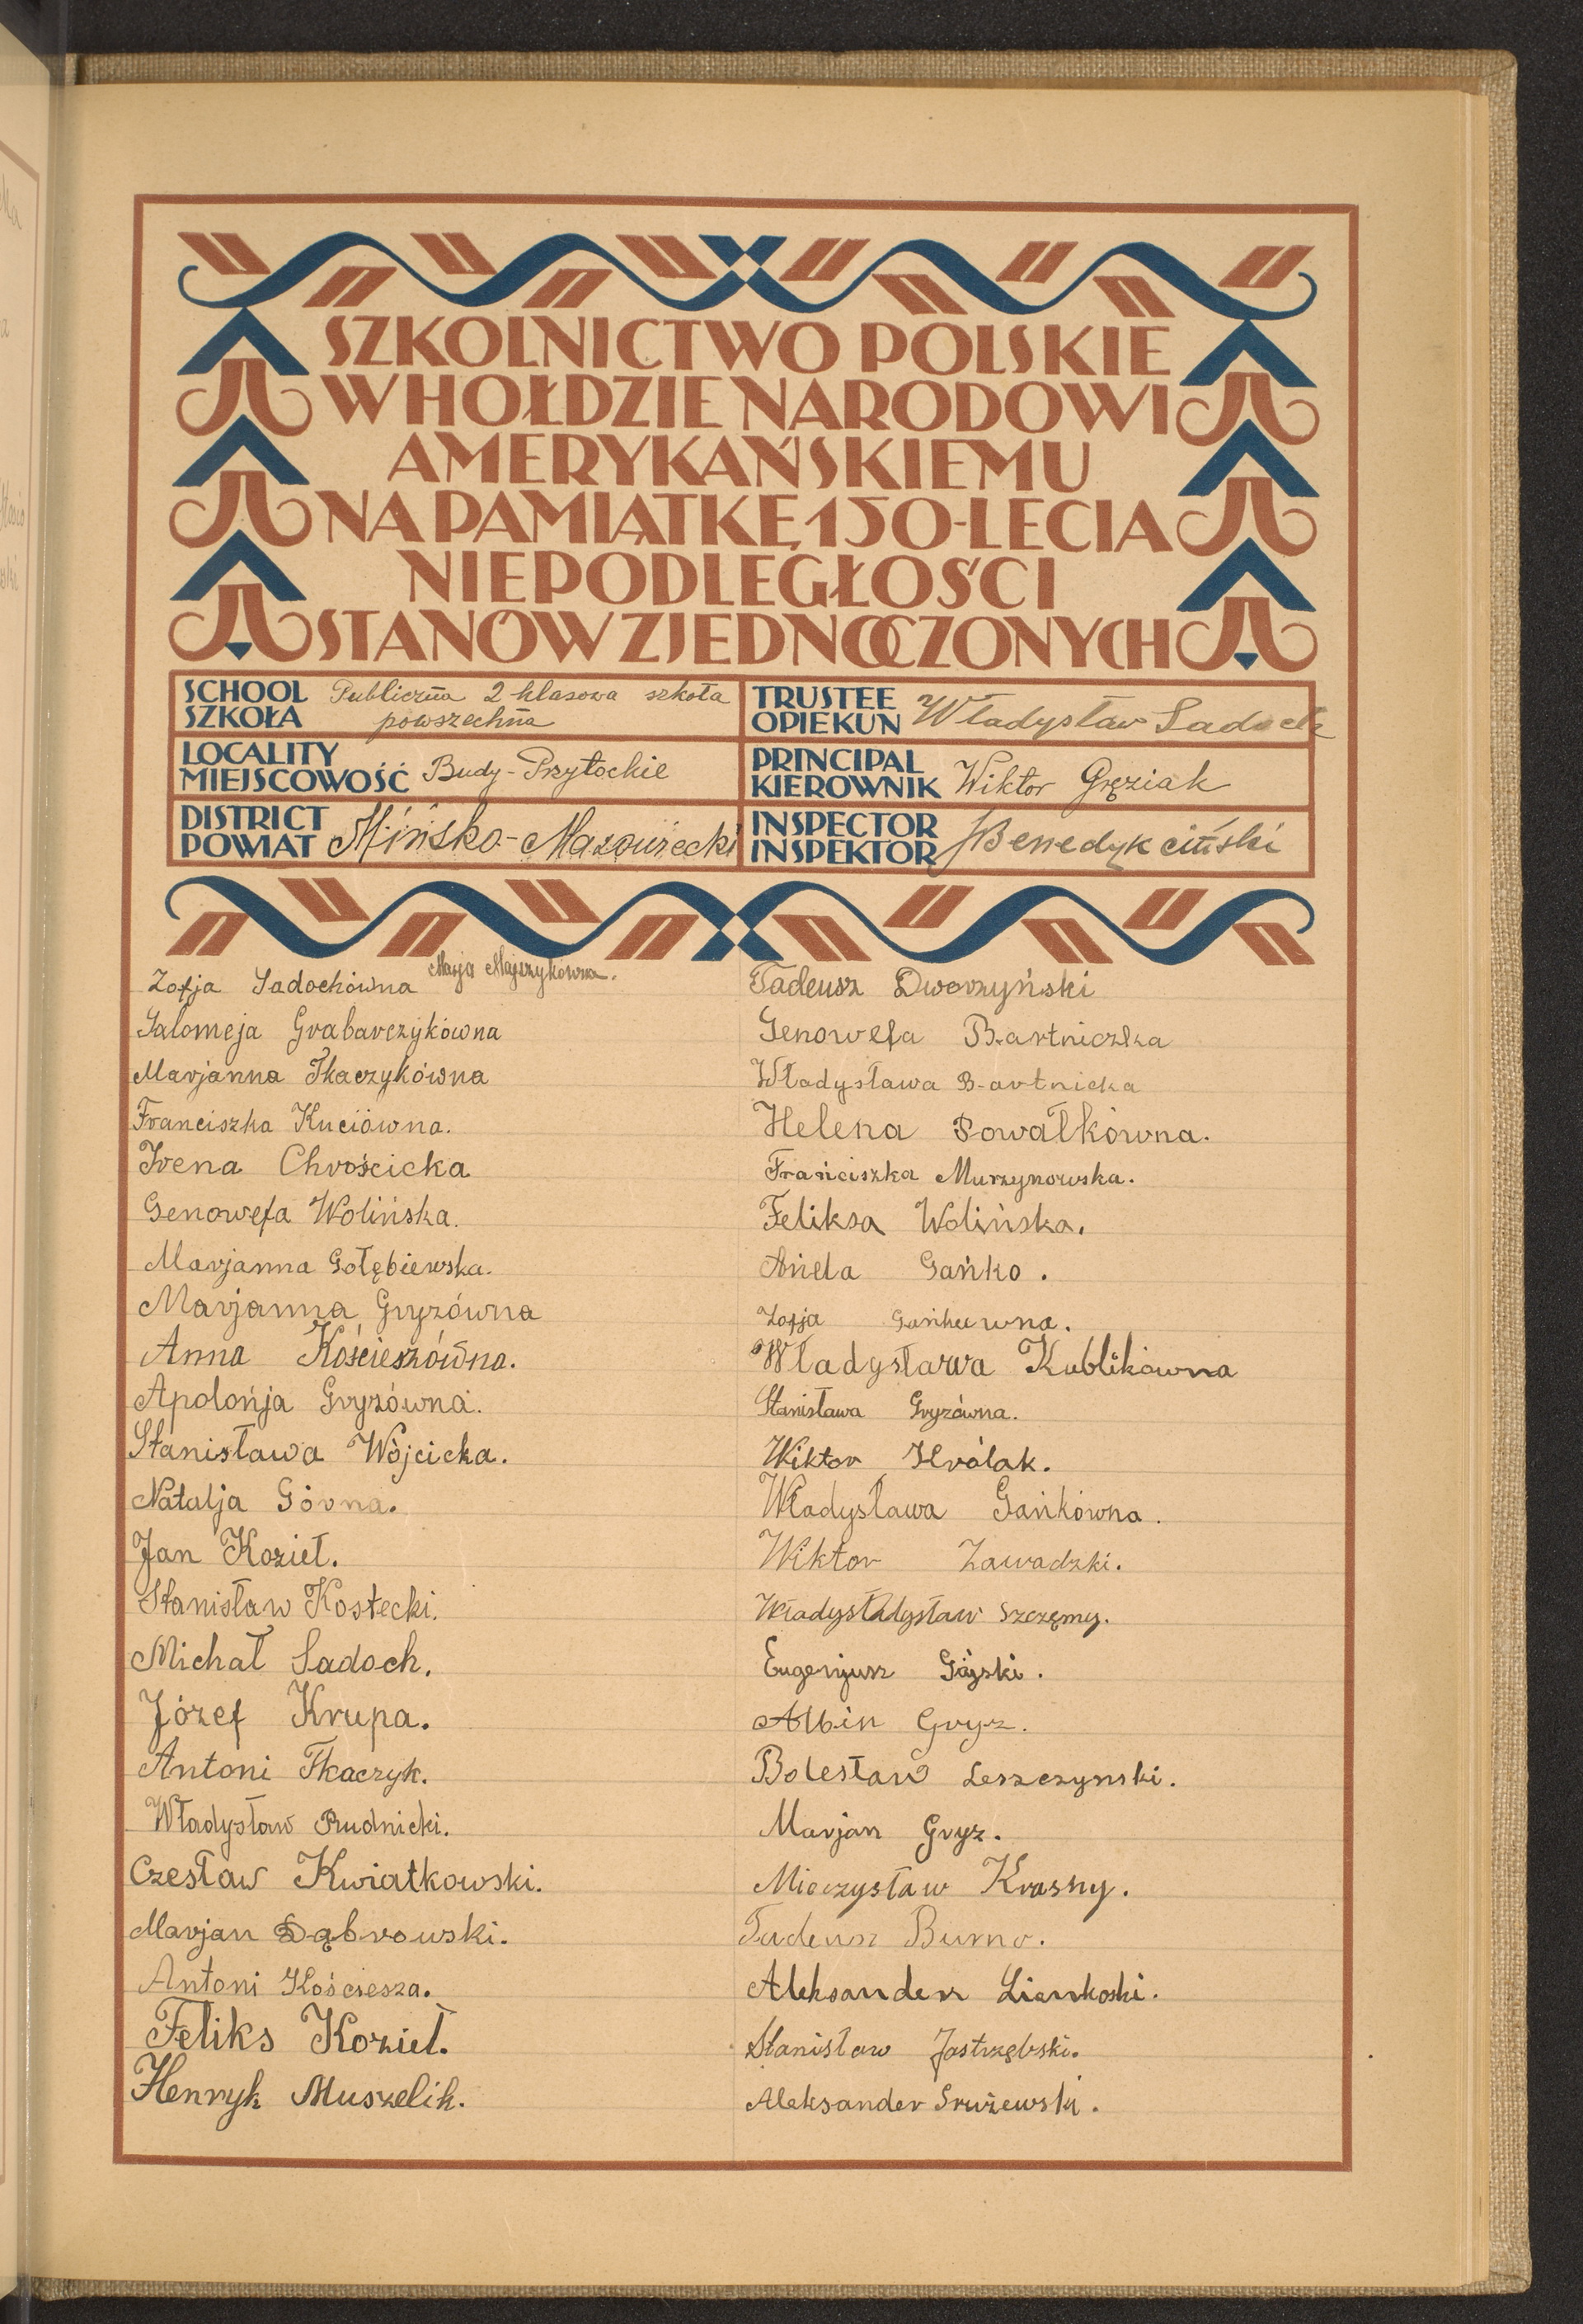 SZKOLNICTWO POLSKIE
W HOŁDZIE NARODOWI
AMERYKAŃSKIEMU
NA PAMIĄTKĘ 150-LECIA
NIEPODLEGŁOŚCI
STANÓW ZJEDNOCZONYCH
SCHOOL
SZKOŁA
Publiczna 2 klasowa szkoła
powszechna
TRUSTEE
OPIEKUN
Władysław Sadoch
LOCALITY
MIEJSCOWOŚĆ
Budy-Przytockie
PRINCIPAL
KIEROWNIK
Wiktor Gręziak
DISTRICT
POWIAT
Mińsko-Mazowiecki
INSPECTOR
INSPEKTOR
Benedykciński
Zofja Sadochówna Marja Majszykówna.
Salomeja Grabarczykówna
Marjanna Tkaczykówna
Franciszka Kuciówna.
Irena Chrościcka
Genowefa Wolińska.
Marjanna Gołębiewska.
Marjanna Gryzówna
Anna Kościeszówna.
Apolonja Gryzówna.
Stanisława Wójcicka.
Natalja Górna.
Jan Kozieł.
Stanisław Kostecki.
Michał Sadoch.
Józef Krupa.
Antoni Tkaczyk.
Władysław Rudnicki.
Czesław Kwiatkowski.
Marjan Dąbrowski.
Antoni Kościesza.
Feliks Kozieł.
Henryk Muszelik.
Tadeusz Dworzyński
Genowefa Bartniczka
Władysława Bartnicka
Helena Powałkówna.
Franciszka Murzynowska.
Feliksa Wolińska.
Aniela Gańko.
Zofja
Władysława Kublikówna
Stanisława Gryzówna.
Wiktor Królak.
Władysława Gańkówna.
Wiktor Zawadzki.
Władysładysław Szczęmy.
Eugenjusz Gájski.
Albin Gryz.
Bolesław Leszczynski.
Marjan Gryz.
Mieczysław Krasny.
Tadeusz Burno.
Aleksander Lienkoski.
Stanisław Jastrzębski.
Aleksander Gružewski.